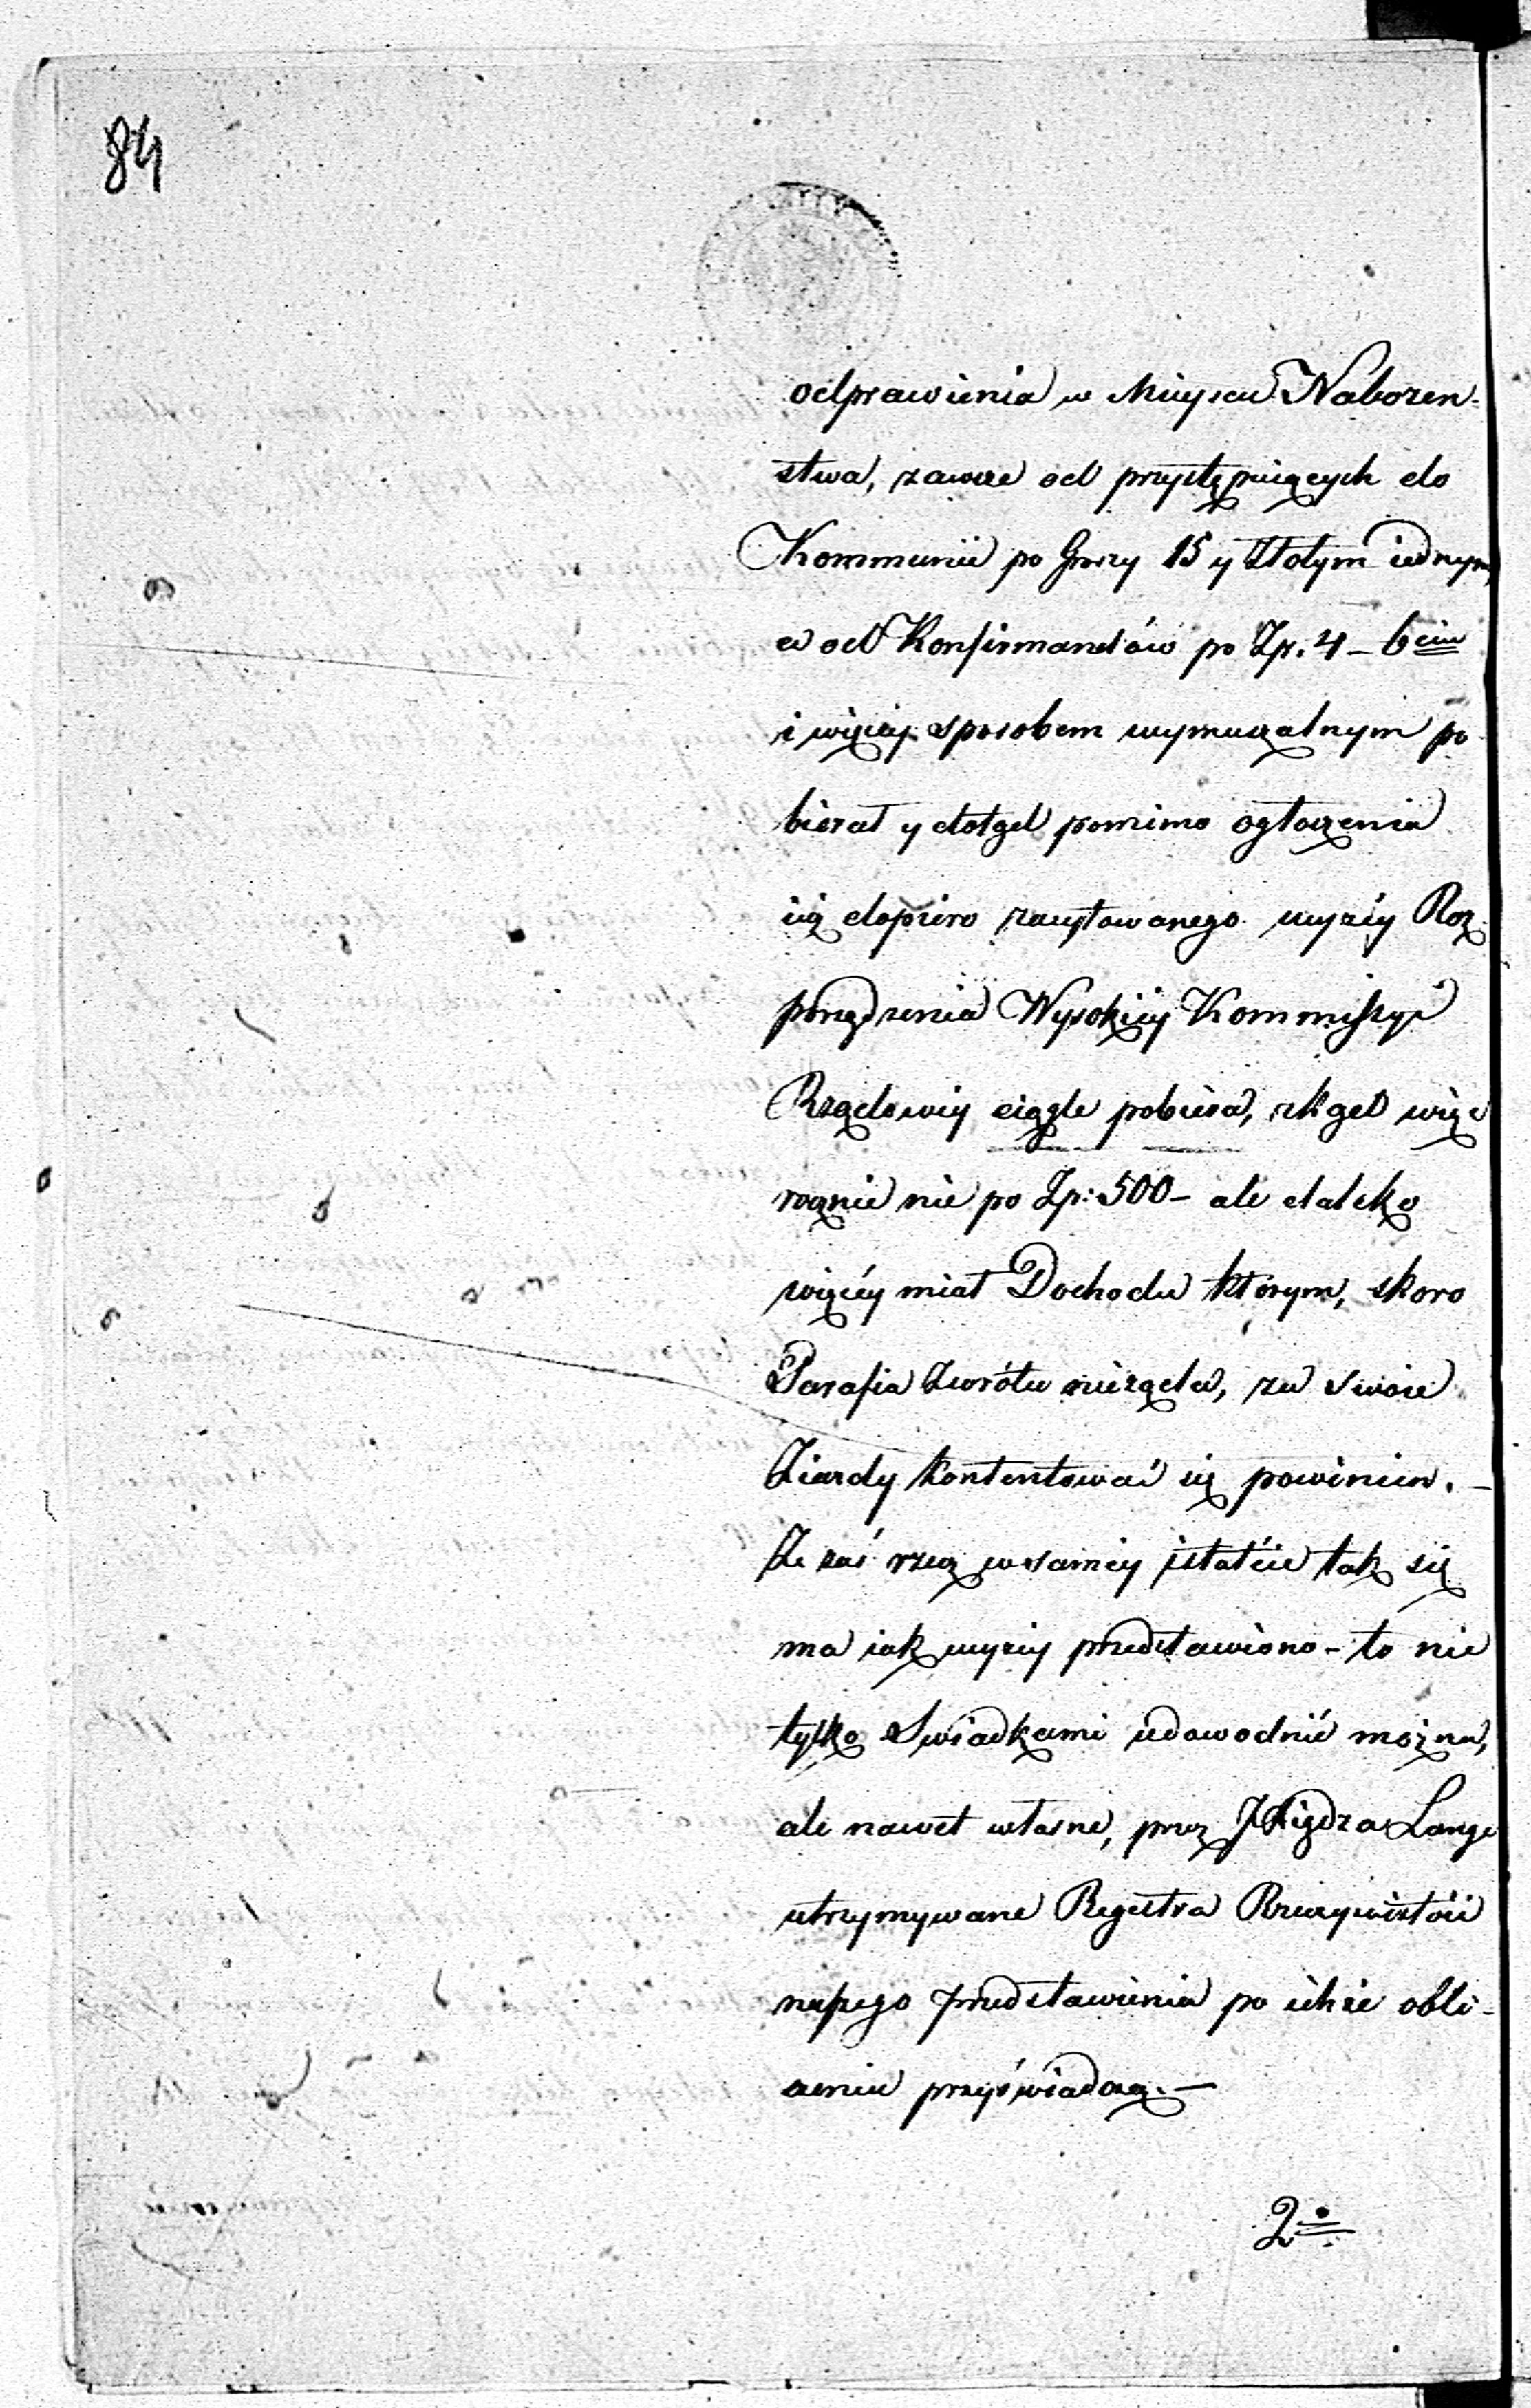 84
odprawienia w Mieyscu Nabożen-
stwa, zawsze od przystępuiących do
Kommunii po Grszy 15 y Złotym iednym,
a od Konfirmandów po Zp. 4 – 6ciu
i więcey sposobem wymuszalnym po
bierał y dotąd pomimo ogłoszenia
iuż dopiero zacytowanego wyżéy Roz
porządzenia Wysokiéy Kommissyi
Rządowéy ciągle pobiera, zkąd więc
rocznie nie po Zp: 500 – ale daleko
więcéy miał Dochodu którym, skoro
Parafia Zwrótu nieżąda, za swoie
Ziazdy kontentować się powinien. –
Że zaś rzecz w saméy istocie tak się
ma iak wyżéy przedstawiono – to nie
tylko Swiadkami udowodnić można,
ale nawet własne, przez JXiędza Lange
utrzymywane Regestra Rzeczywistość
naszego przedstawienia po ichże obli-
czeniu przyświadczą. –
2o